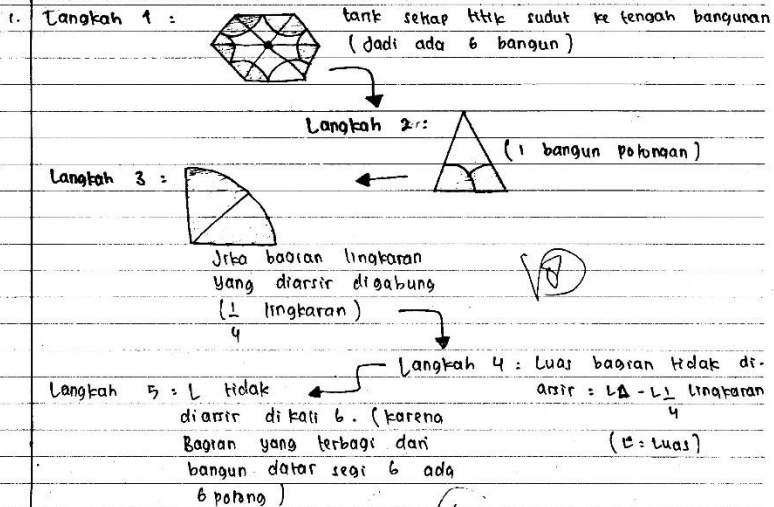 1. Langkah 1 : tarik setiap titik sudut ke tengah bangunan
(Jadi ada 6 bangun)
Langkah 2 :
(1 bangun potongan)
Langkah 3 :
Jika bagian lingkaran
yang diarsir digabung
(1/4 lingkaran)
Langkah 4 : Luas bagian tidak di-
arsir : LΔ - L 1/4 lingkaran
(L : Luas)
Langkah 5 : L tidak
diarsir di kali 6. (karena
Bagian yang terbagi dari
bangun datar segi 6 ada
6 potong)